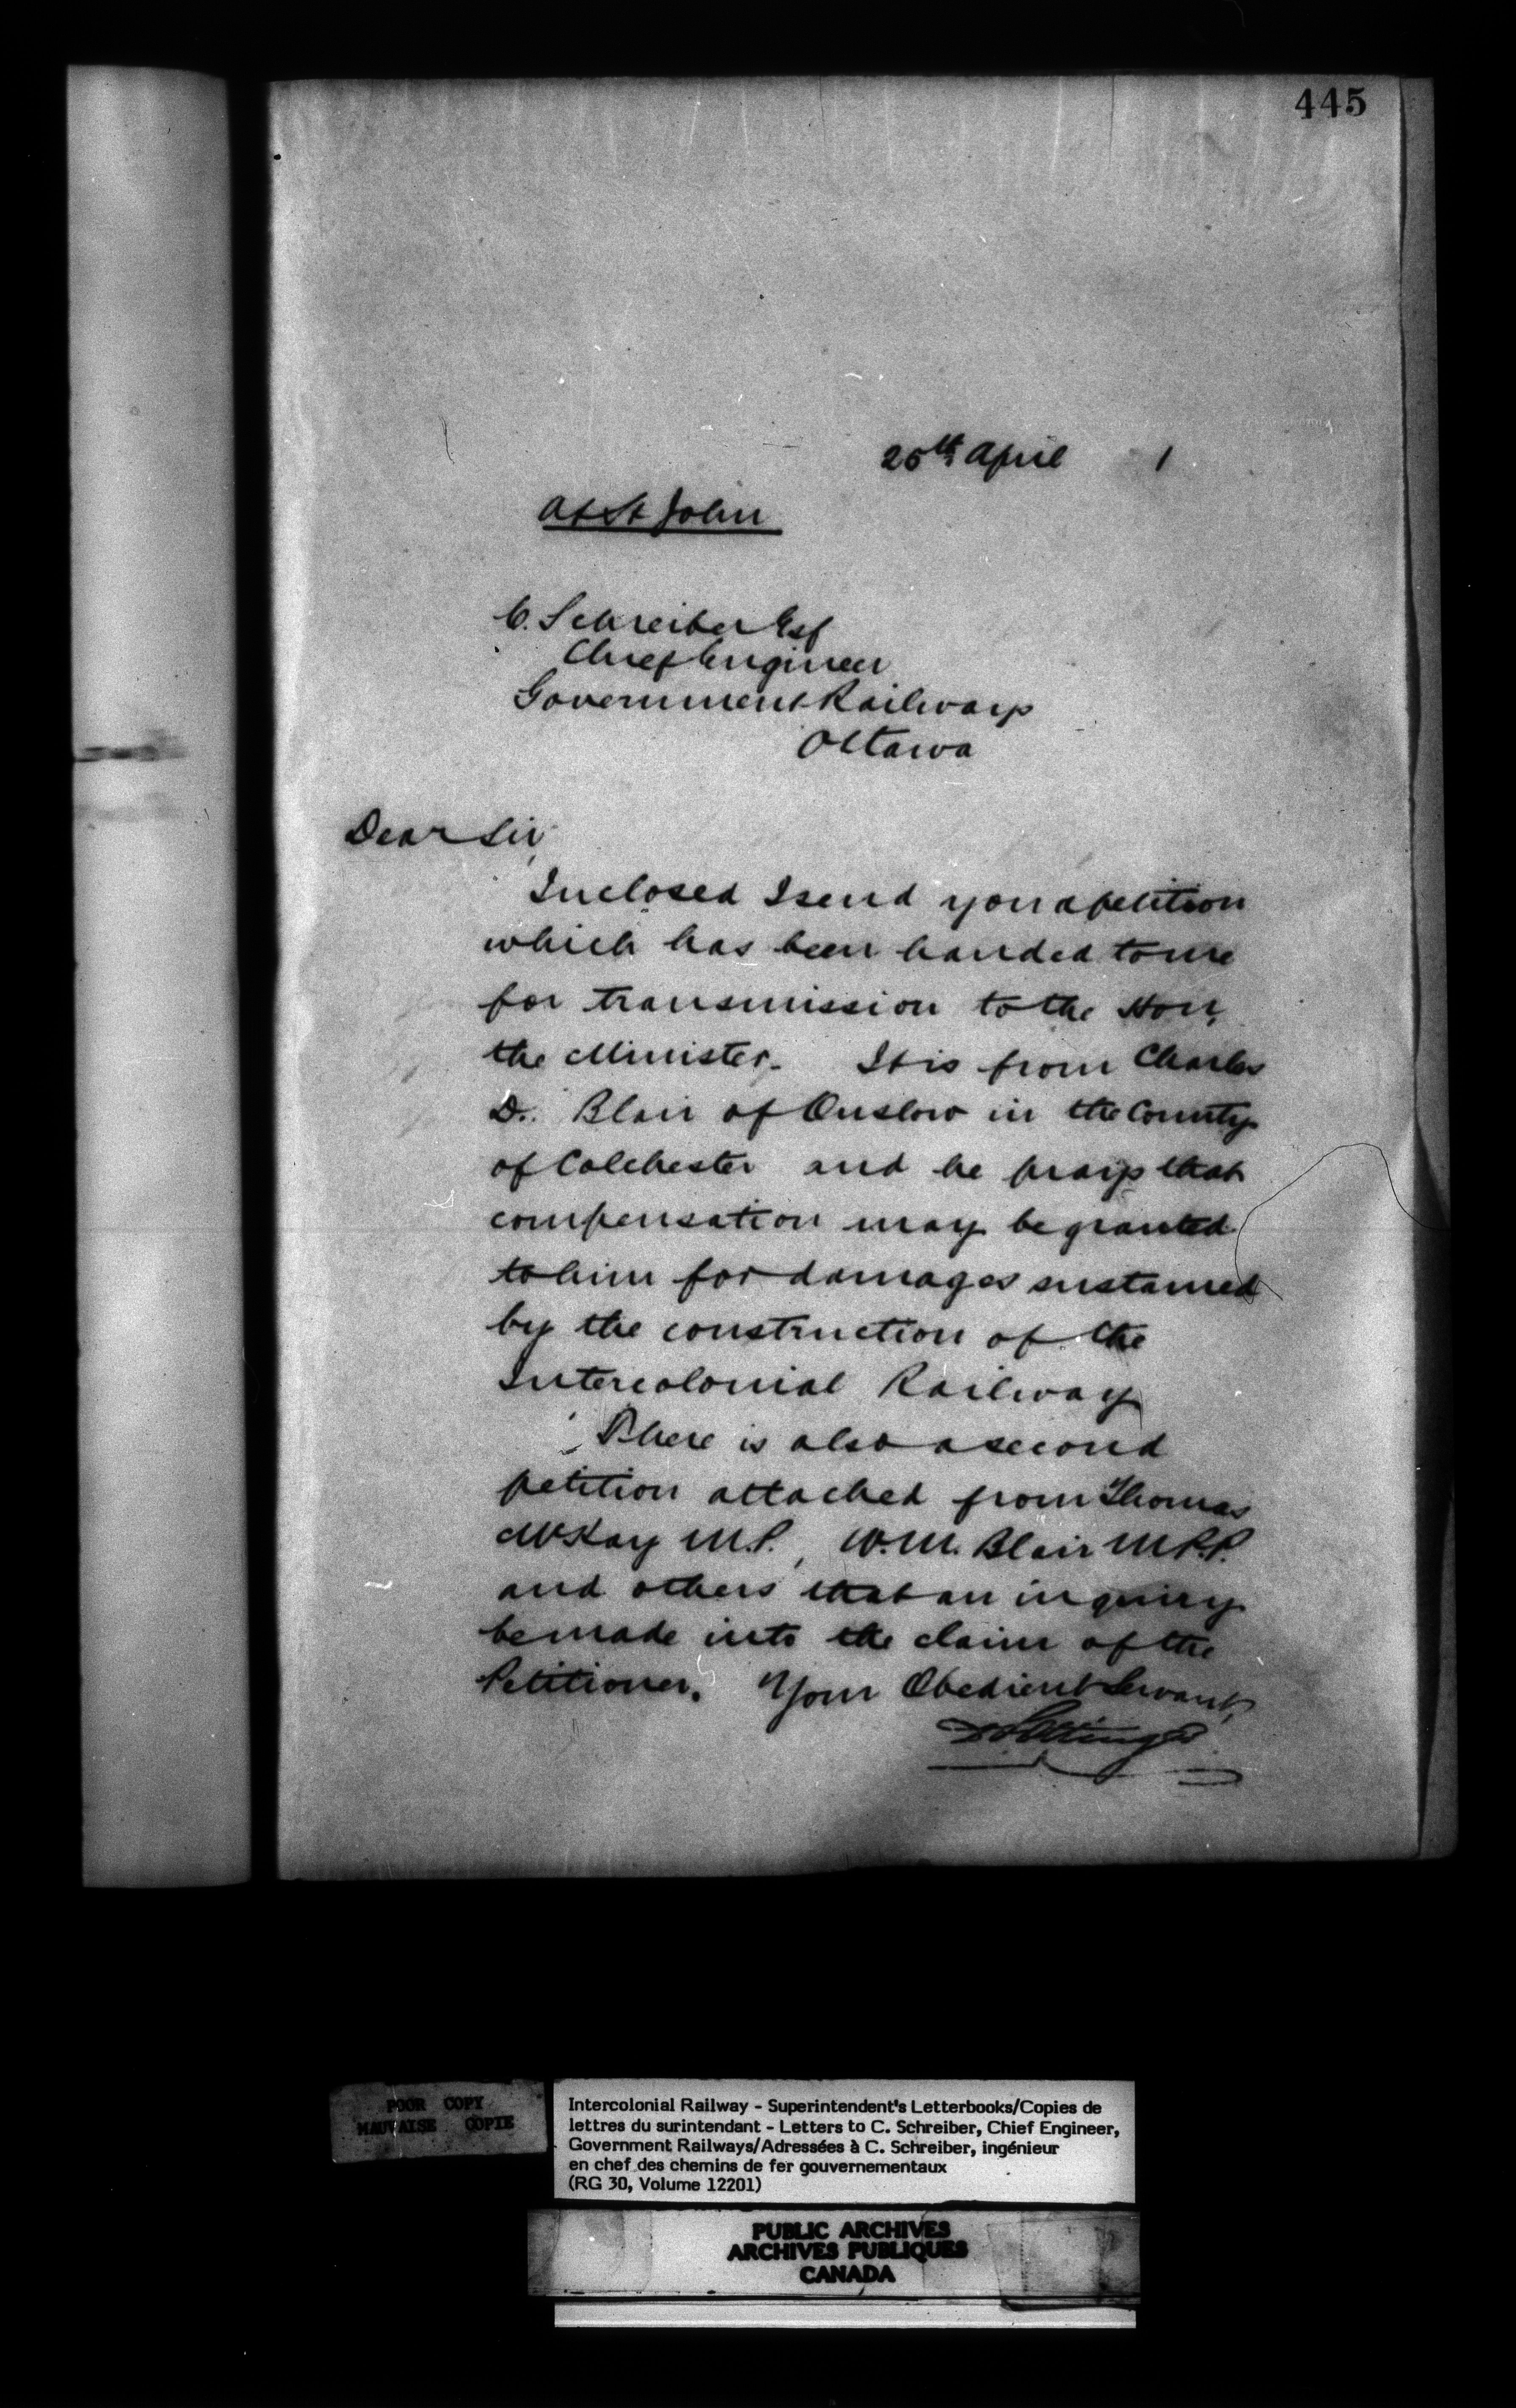 445
25th April 1
At St John
C. Schreiber Esq
Chief Engineer
Government Railways
Ottawa
Dear Sir,
Inclosed I send you a petition
which has been handed to me
for transmission to the Hon,
the Minister. It is from Charles
D. Blair of Onslow in the County
of Colchester and he prays that
compensation may be granted
to him for damages sustained
by the construction of the
Intercolonial Railway
There is also a second
petition attached from Thomas
McKay M.P., W.M. Blair M.P.P.
and others that an inquiry
be made into the claim of the
Petitioner. Your Obedient Servant,
D Pottinger
POOR COPY
MAUVAISE COPIE
Intercolonial Railway - Superintendent's Letterbooks/Copies de
lettres du surintendant - Letters to C. Schreiber, Chief Engineer,
Government Railways/Adressées à C. Schreiber, ingénieur
en chef des chemins de fer gouvernementaux
(RG 30, Volume 12201)
PUBLIC ARCHIVES
ARCHIVES PUBLIQUES
CANADA